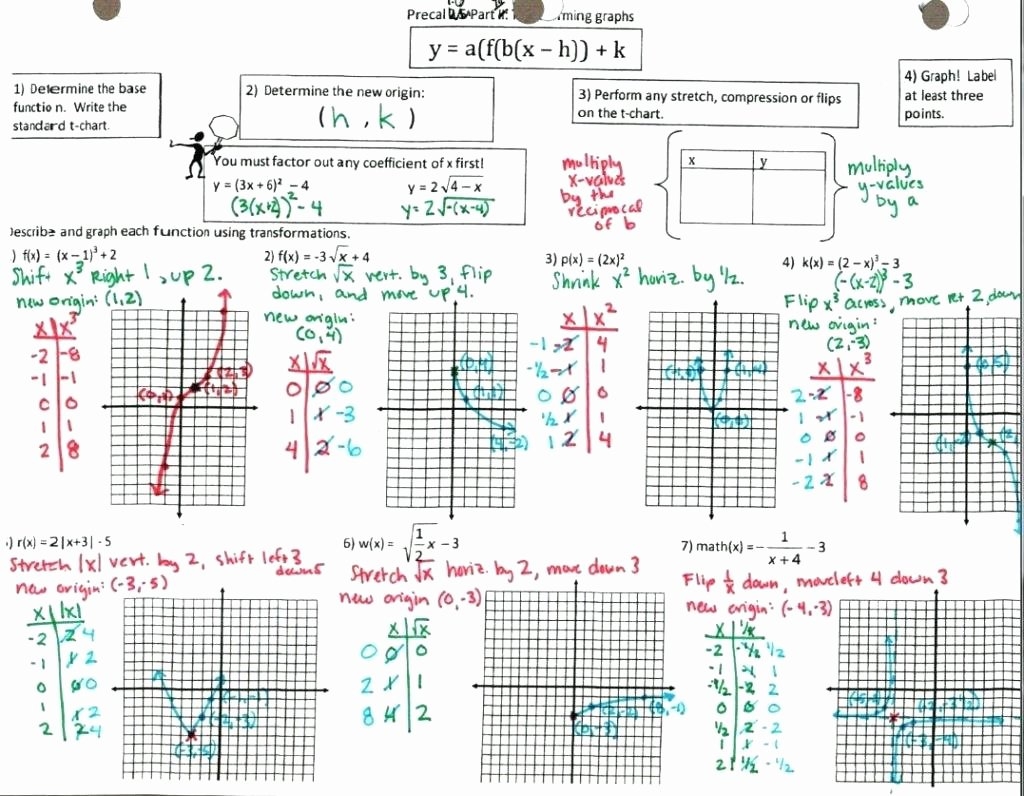 Precal Part rming graphs
y = a(f(b(x – h)) + k
1) Determine the base
function. Write the
standard t-chart.
2) Determine the new origin:
(h, k)
3) Perform any stretch, compression or flips
on the t-chart.
4) Graph! Label
at least three
points.
You must factor out any coefficient of x first!
y = (3x + 6)² – 4
y = 2√4 – x
(3(x+2))² - 4
y= 2√-(x-4)
multiply
x-values
by the
reciprocal
of b
x y
multiply
y-values
by a
Describe and graph each function using transformations.
) f(x) = (x – 1)³ + 2
Shift x³ Right 1, up 2.
new origin: (1,2)
X X³
-2 -8
-1 -1
0 0
1 1
2 8
(2,3)
(1,2)
(0,1)
2) f(x) = -3√x + 4
Stretch √x vert. by 3, flip
down, and move up 4.
new origin:
(0,4)
X √X
0 0 0
1 1 -3
4 2 -6
(0,4)
(1,1)
(4,-2)
3) p(x) = (2x)²
Shrink x² horiz. by 1/2.
X X²
-1 -2 4
-1/2 -1 1
0 0 0
1/2 1 1
1 2 4
(-1,4) (1,4)
(0,0)
4) k(x) = (2 – x)³ – 3
(-(x-2))³ - 3
Flip x³ across, move rt 2, down
new origin:
(2,-3)
X X³
2 -2 -8
1 -1 -1
0 0 0
-1 1 1
-2 2 8
(0,5)
(1,-2)
(2,
) r(x) = 2|x+3| - 5
Stretch |x| vert. by 2, shift left 3
down 5
new origin: (-3,-5)
X |X|
-2 2 4
-1 1 2
0 0 0
1 1 2
2 2 4
(-1,-1)
(-2,-3)
(-3,-5)
6) w(x) = √1/2 x – 3
Stretch √x horiz. by 2, move down 3
new origin (0,-3)
X √X
0 0 0
2 1 1
8 4 2
(2,-2) (8,-1)
(0,-3)
7) math(x) = – 1/x + 4 – 3
Flip 1/x down, move left 4 down 3
new origin: (-4,-3)
X 1/x
-2 -1/2 1/2
-1 -1 1
-1/2 -2 2
0 0 0
1/2 2 -2
1 1 -1
2 1/2 -1/2
(-5,-2)
(-2,-3 1/2)
(-3,-4)